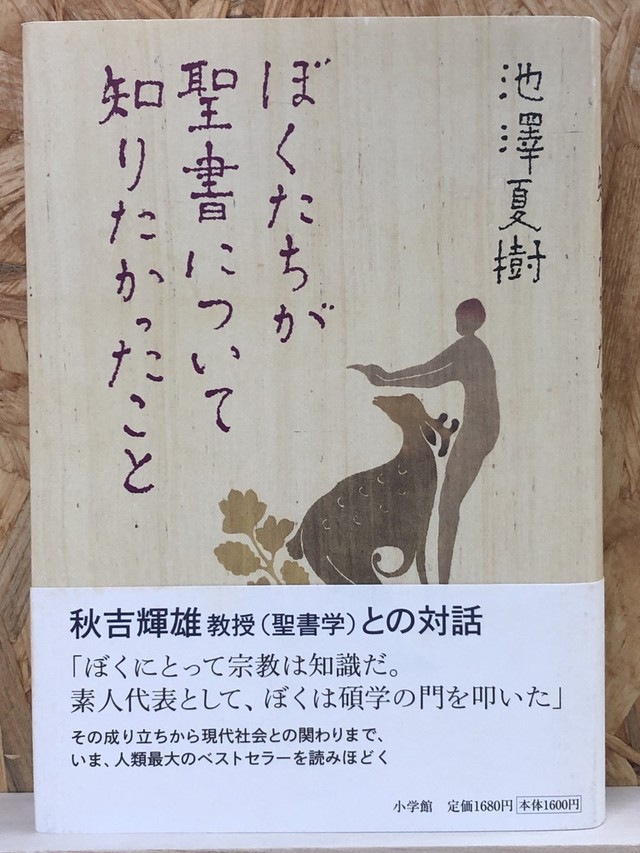 池澤夏樹
ぼくたちが
聖書について
知りたかったこと
秋吉輝雄教授(聖書学)との対話
「ぼくにとって宗教は知識だ。
素人代表として、ぼくは碩学の門を叩いた」
その成り立ちから現代社会との関わりまで、
いま、人類最大のベストセラーを読みほどく
小学館 定価1680円 本体1600円